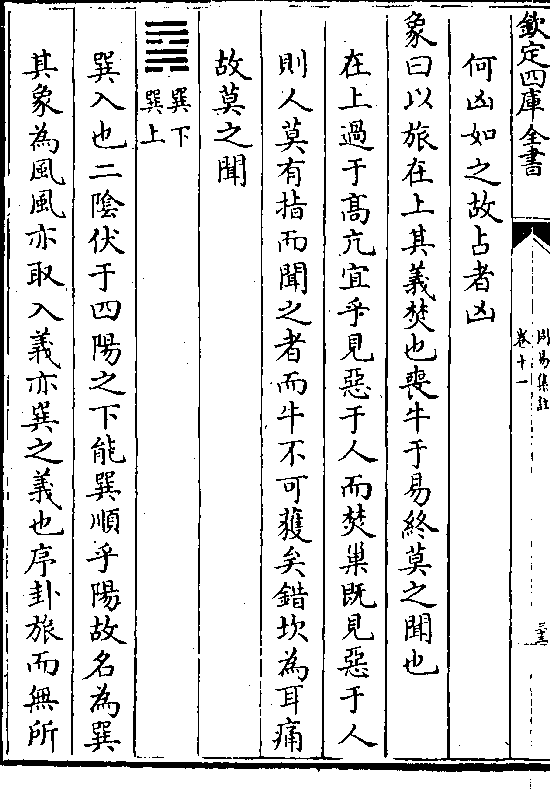 欽定四庫全書
周易集註
卷十一
何凶如之故占者凶
象曰以旅在上其義焚也喪牛于易終莫之聞也
在上過于高亢宜乎見惡于人而焚巢既見惡于人
則人莫有指而聞之者而牛不可獲矣錯坎為耳痛
故莫之聞
巽下
巽上
巽入也二陰伏于四陽之下能巽順乎陽故名為巽
其象為風風亦取入義亦巽之義也序卦旅而無所